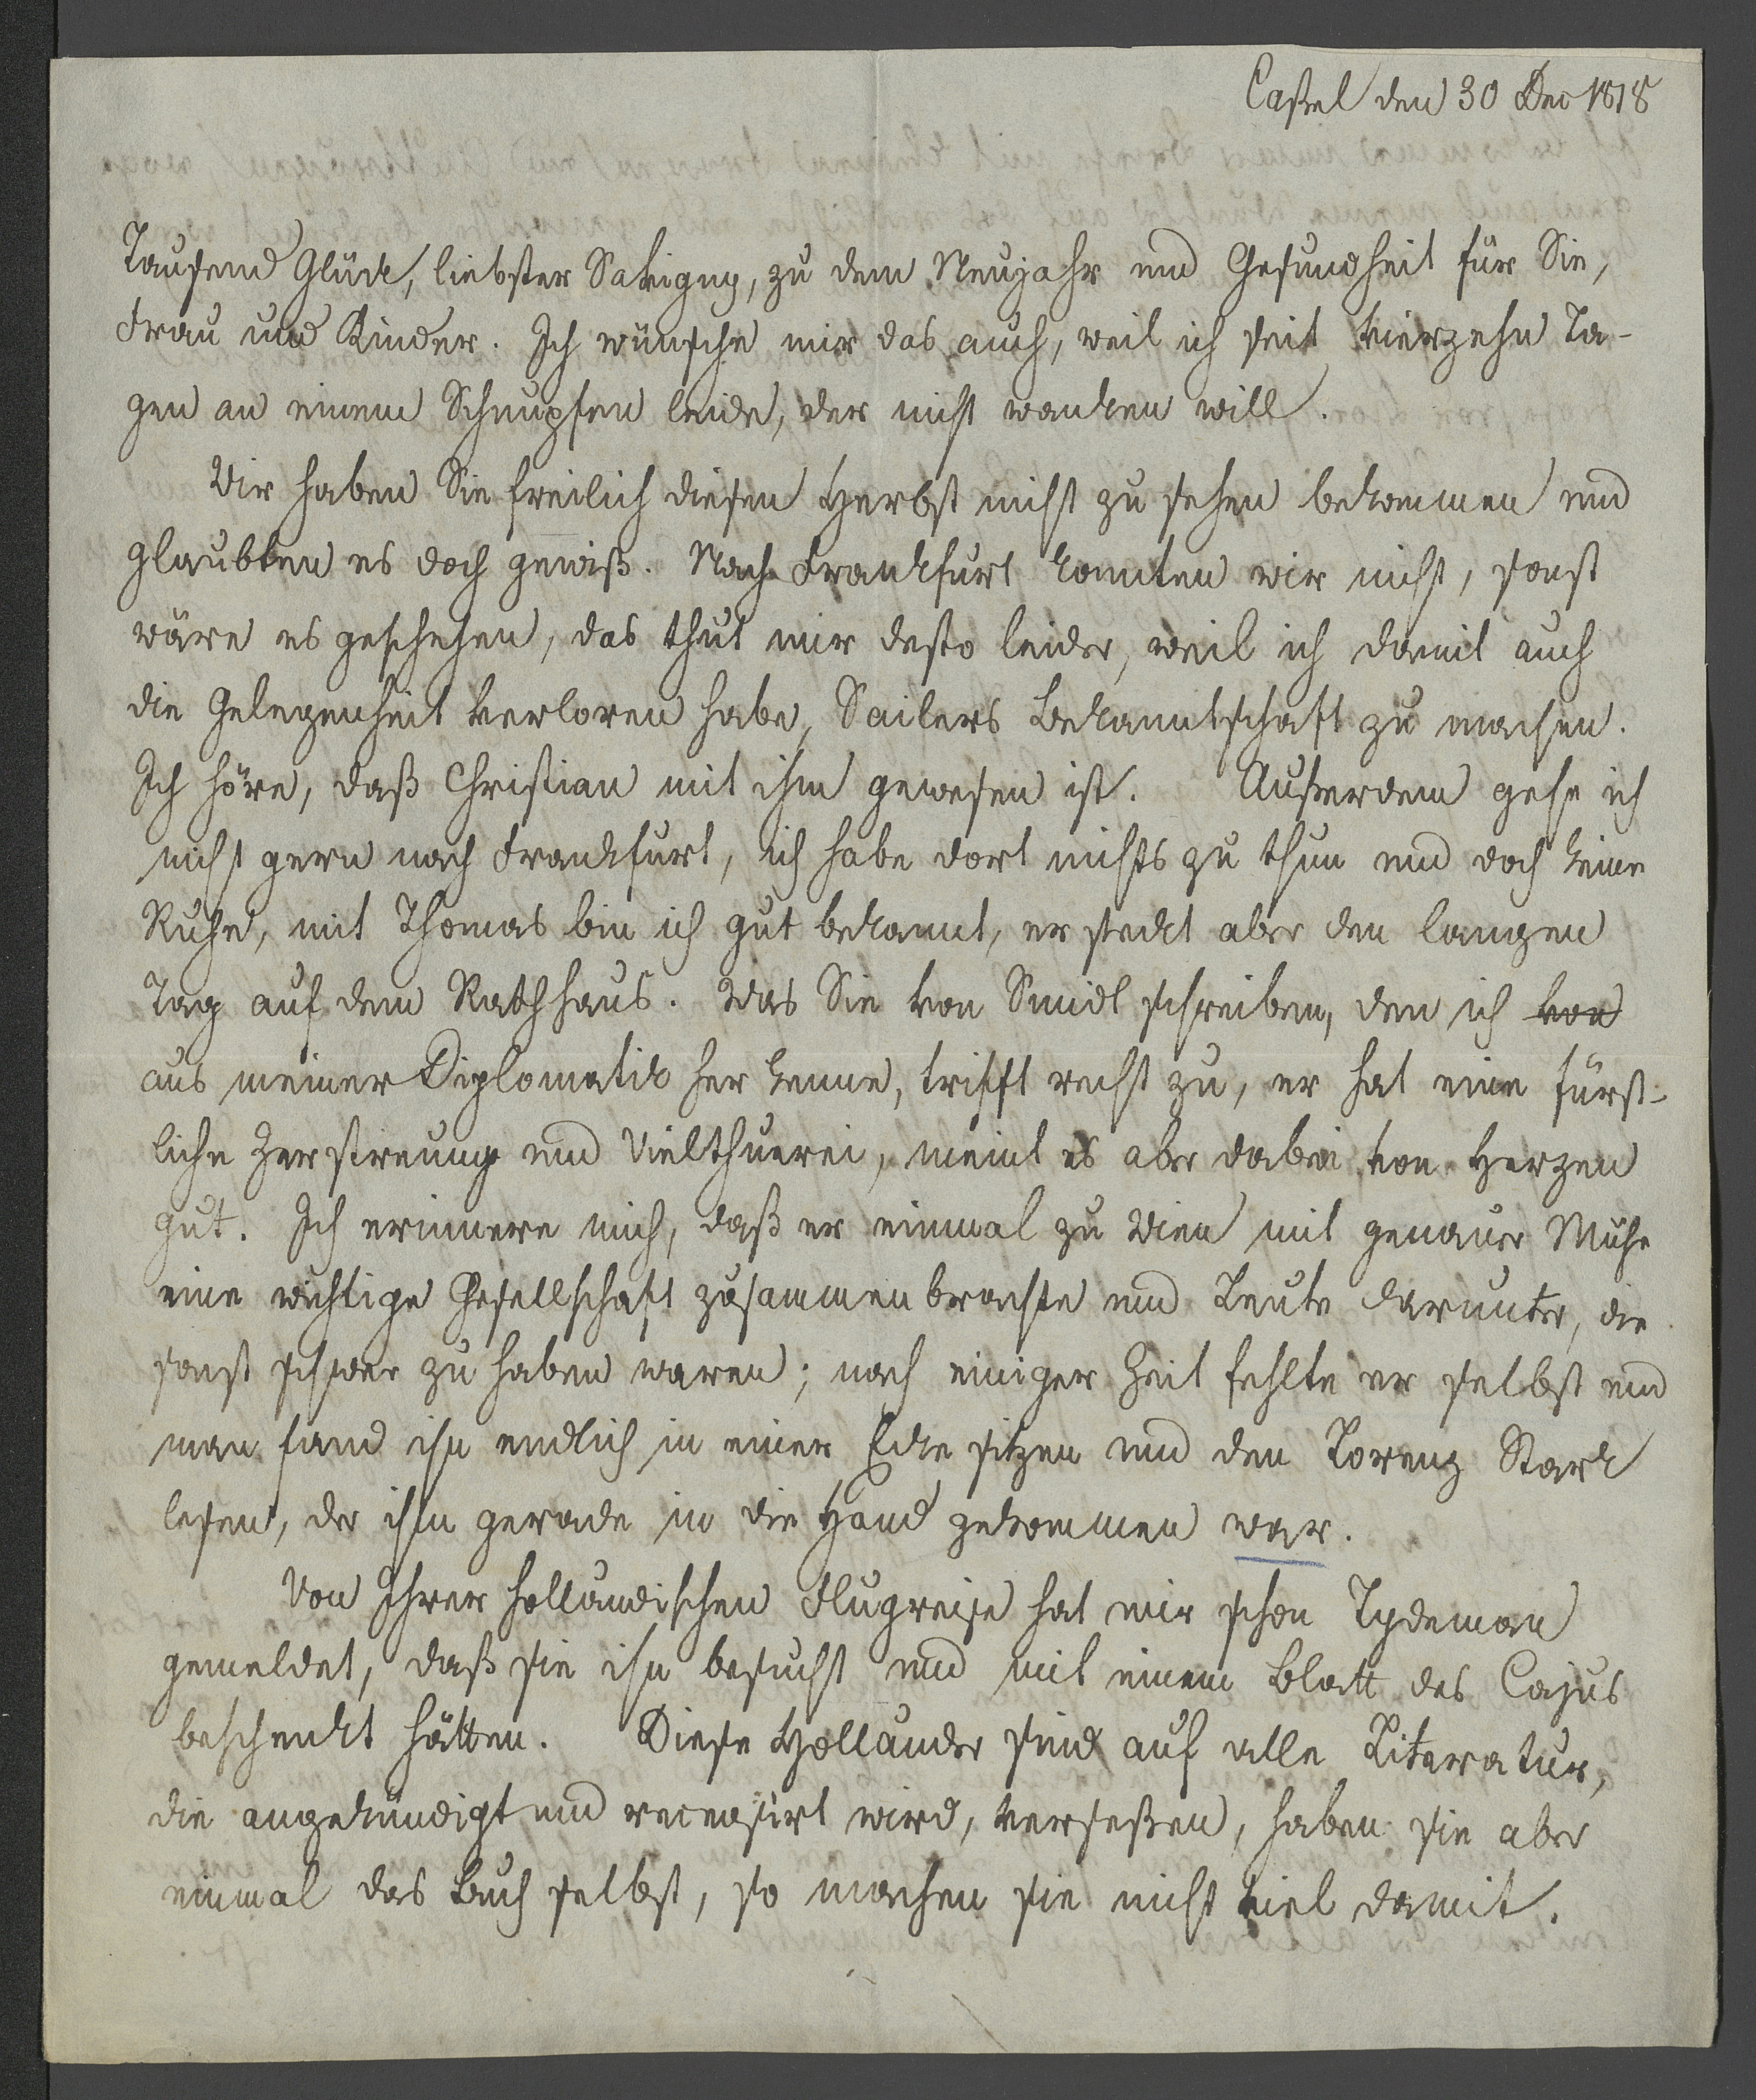 Caßel den 30 Dec 1818
Tausend Glück, liebster Savigny, zu dem Neujahr und Gesundheit für Sie,
Frau und Kinder. Ich wünsche mir das auch, weil ich seit vierzehn Ta-
gen an einem Schnupfen leide, der nicht wanken will.
Wir haben Sie freilich diesen Herbst nicht zu sehen bekommen und
glaubten es doch gewiß. Nach Frankfurt konnten wir nicht, sonst
wäre es geschehen, das thut mir desto leider, weil ich damit auch
die Gelegenheit verloren habe, Sailers Bekanntschaft zu machen.
Ich höre, daß Christian mit ihm gewesen ist. Außerdem gehe ich
nicht gern nach Frankfurt, ich habe dort nichts zu thun und doch keine
Ruhe, mit Thomas bin ich gut bekannt, er steckt aber den langen
Tag auf dem Rathhaus. Was Sie von Smidt schreiben, den ich von
aus meiner Diplomatik her kenne, trifft recht zu, er hat eine fürst-
liche Zerstreuung und Vielthuerei, meint es aber dabei von Herzen
gut. Ich erinnere mich, daß er einmal zu Wien mit genauer Mühe
eine wichtige Gesellschaft zusammenbrachte und Leute darunter, die
sonst schwer zu haben waren; nach einiger Zeit fehlte er selbst und
man fand ihn endlich in einer Ecke sitzen und den Lorenz Stark
lesen, der ihm gerade in die Hand gekommen war.
Von Ihrer holländischen Flugreise hat mir schon Tydeman
gemeldet, daß sie ihn besucht und mit einem Blatt des Cajus
beschenkt hätten. Diese Holländer sind auf alle Literatur,
die angekündigt und recensirt wird, verseßen, haben sie aber
einmal das Buch selbst, so machen sie nicht viel damit.